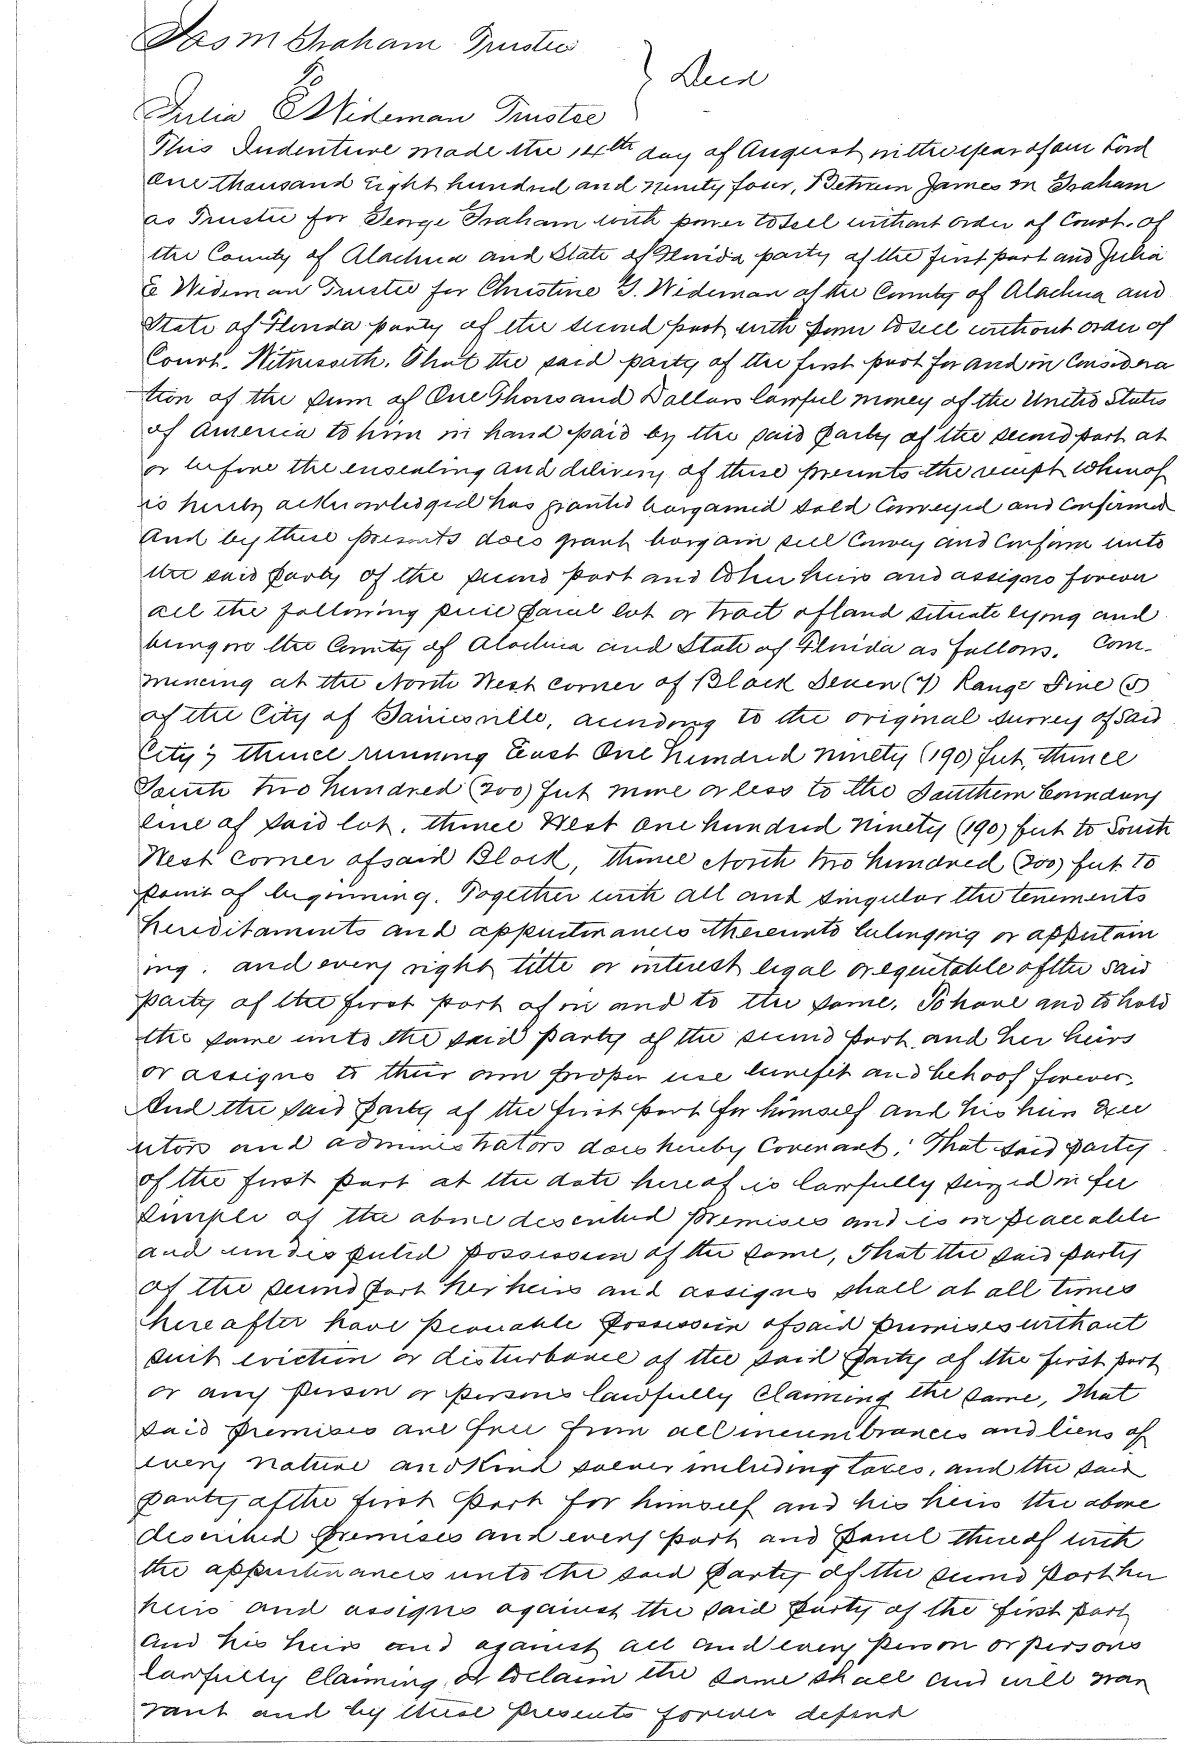 Jas M Graham Trustee
To } Deed
Julia E Wideman Trustee
This Indenture made the 14th day of August in the year of our Lord
One thousand Eight hundred and ninety four, Between James M Graham
as Trustee for George Graham with power to sell without order of Court. of
the County of Alachua and State of Florida party of the first part and Julia
E Wideman Trustee for Christine G. Wideman of the County of Alachua and
State of Florida party of the second part with power to sell without order of
Court. Witnesseth. That the said party of the first part for and in Considera
tion of the sum of One Thousand Dollars lawful money of the United States
of America to him in hand paid by the said party of the second part at
or before the ensealing and delivery of these presents the receipt whereof
is hereby acknowledged has granted bargained sold Conveyed and Confirmed
And by these presents does grant bargain sell Convey and Confirm unto
the said party of the second part and to her heirs and assigns forever
all the following piece parcel lot or tract of land situate lying and
being in the County of Alachua and State of Florida as follows. Com-
mencing at the North West corner of Block Seven (7) Range Five (5)
of the City of Gainesville, according to the original survey of said
City; thence running East One hundred ninety (190) feet thence
South two hundred (200) feet more or less to the Southern boundary
line of said lot. thence West one hundred ninety (190) feet to South
West corner of said Block, thence North two hundred (200) feet to
point of beginning. Together with all and singular the tenements
hereditaments and appurtinances thereunto belonging or appertain
ing. and every right title or interest legal or equitable of the said
party of the first part of in and to the same. To have and to hold
the same unto the said party of the second part and her heirs
or assigns to their own proper use benefit and behoof forever.
And the said party of the first part for himself and his heirs Exec
utors and administrators does hereby Covenant; That said party
of the first part at the date hereof is lawfully seized in fee
simple of the above described premises and is in peaceable
and undisputed possession of the same, That the said party
of the second part her heirs and assigns shall at all times
hereafter have peaceable possession of said premises without
suit eviction or disturbance of the said party of the first part
or any person or persons lawfully claiming the same, that
said premises are free from all incumbrances and liens of
every nature and Kind soever including taxes, and the said
party of the first part for himself and his heirs the above
described premises and every part and parcel thereof with
the appurtinances unto the said party of the second part her
heirs and assigns against the said party of the first part
and his heirs and against all and every person or persons
lawfully claiming or to claim the same shall and will war
rant and by these presents forever defend